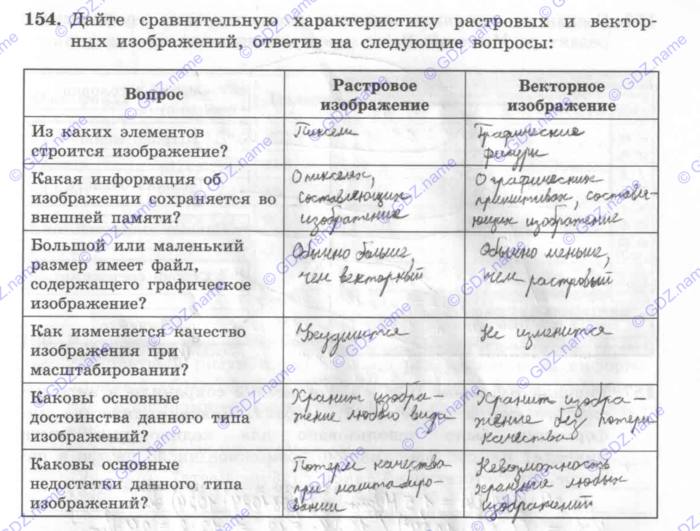 154. Дайте сравнительную характеристику растровых и вектор-
ных изображений, ответив на следующие вопросы:
Вопрос
Растровое
изображение
Векторное
изображение
Из каких элементов
строится изображение?
Пиксели
Графические
фигуры
Какая информация об
изображении сохраняется во
внешней памяти?
О пикселях,
составляющих
изображение
О графических
примитивах, составля-
ющих изображение
Большой или маленький
размер имеет файл,
содержащего графическое
изображение?
Обычно больше,
чем векторный
Обычно меньше,
чем растровый
Как изменяется качество
изображения при
масштабировании?
Ухудшится
Не изменится
Каковы основные
достоинства данного типа
изображений?
Хранит изобра-
жение любого вида
Хранит изобра-
жение без потери
качества
Каковы основные
недостатки данного типа
изображений?
Потеря качества
при масштабиро-
вании
Невозможность
хранения любых
изображений
© GDZ.name